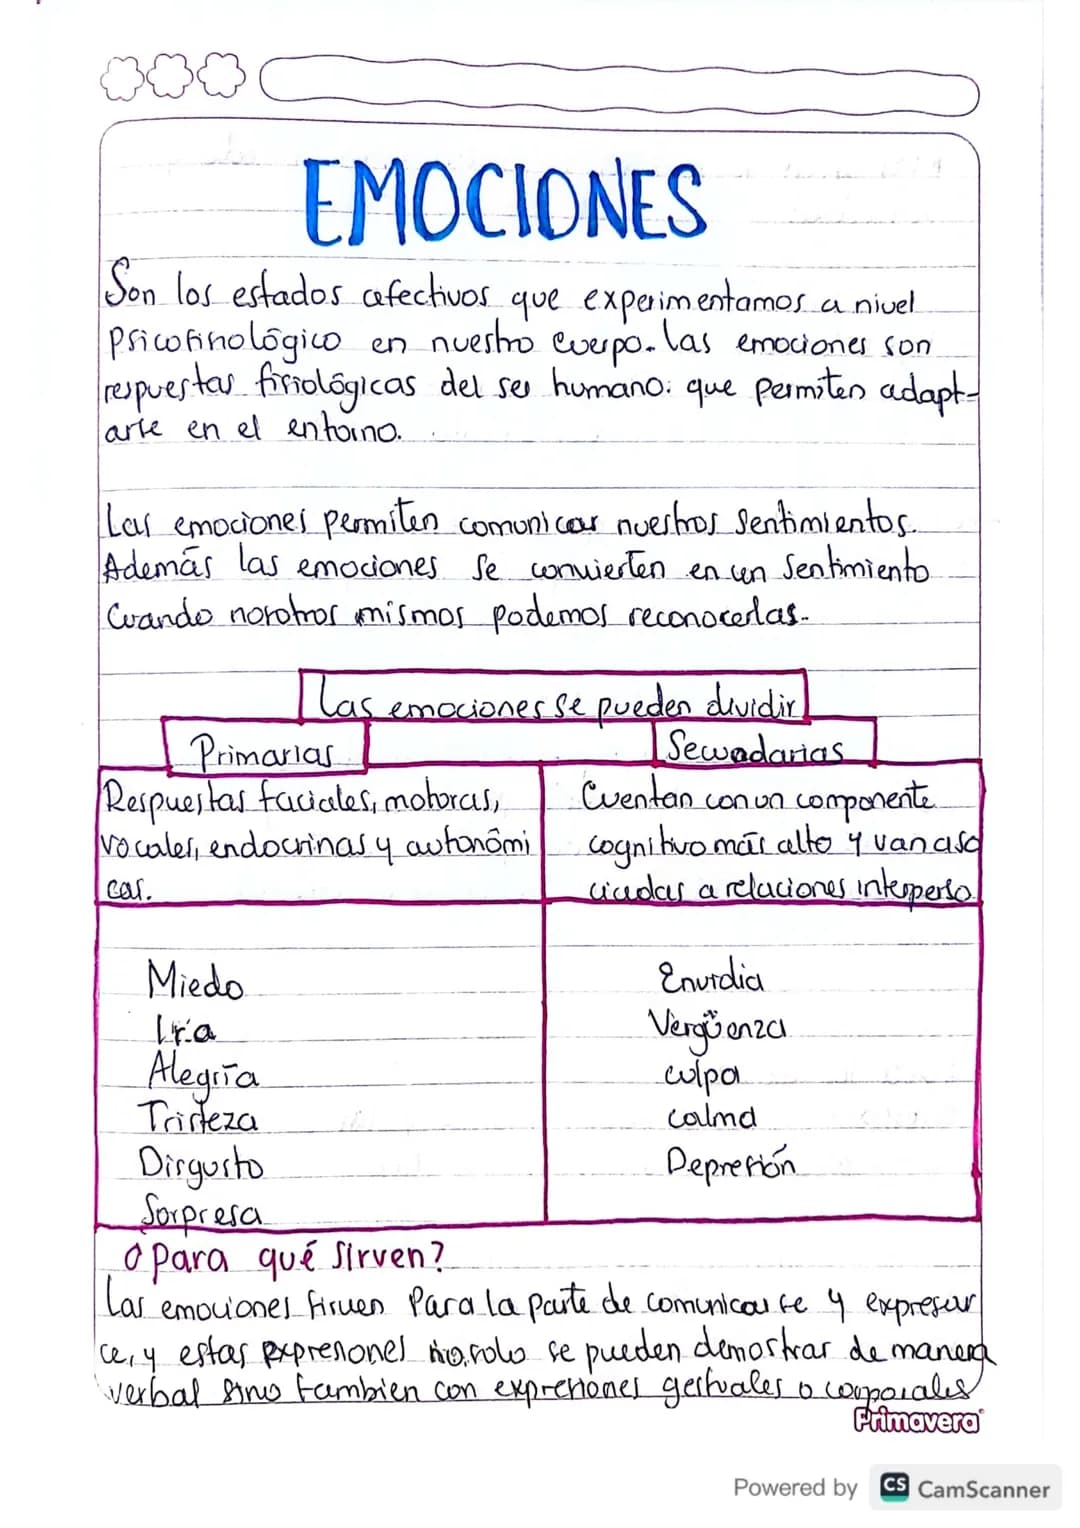 EMOCIONES
Son los estados afectivos que experimentamos a nivel
psicofinológico en nuestro cuerpo. las emociones son
respuestas fisiológicas del ser humano: que permiten adapt-
arte en el entorno.
Las emociones permiten comunicar nuestros sentimientos.
Además las emociones se convierten en un sentimiento
Cuando nosotros mismos podemos reconocerlas.
Las emociones se pueden dividir
Primarias
Secundarias
Respuestas faciales, motoras,
vocales, endocrinas y autonómi
cas.
Cuentan con un componente
cognitivo más alto y van aso
ciadas a relaciones interperso
Miedo
Ira
Alegría
Tristeza
Disgusto
Sorpresa
Envidia
Vergüenza
culpa
calma
Depresión
¿Para qué sirven?
Las emociones sirven Para la parte de comunicarse y expresar
ce, y estas expresiones no solo se pueden demostrar de manera
verbal sino tambien con expresiones gestuales o corporales
Primavera
Powered by CS CamScanner